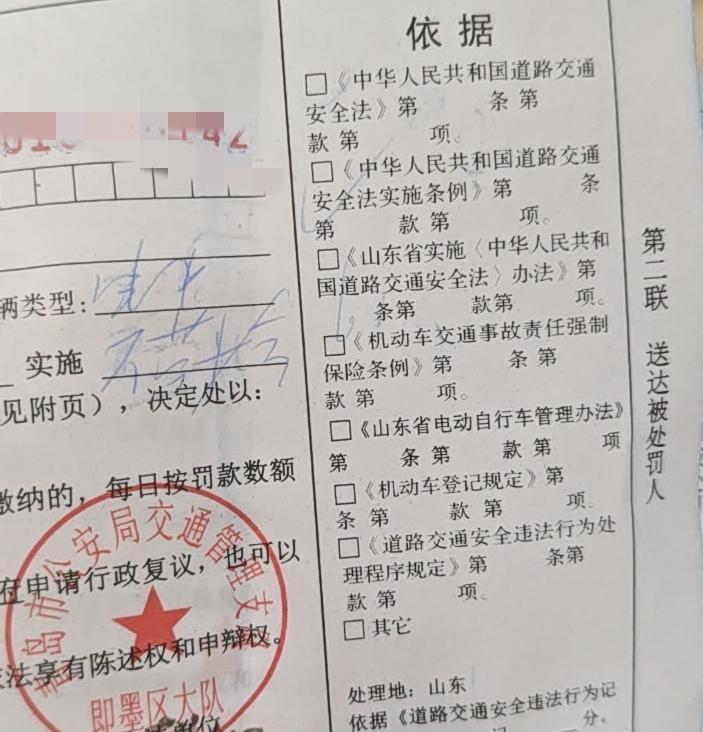 依据
□《中华人民共和国道路交通
安全法》第 条 第
款 第 项。
□《中华人民共和国道路交通
安全法实施条例》第 条
第 款 第 项。
□《山东省实施〈中华人民共和
国道路交通安全法〉办法》第
条第 款第 项。
□《机动车交通事故责任强制
保险条例》第 条 第
款 第 项。
□《山东省电动自行车管理办法》
第 条 第 款 第 项
□《机动车登记规定》第
条 第 款 第 项。
□《道路交通安全违法行为处
理程序规定》第 条第
款 第 项。
□其它
处理地：山东
依据《道路交通安全违法行为记
分。
142
辆类型:
实施 不带头盔
见附页），决定处以：
缴纳的，每日按罚款数额
府申请行政复议，也可以
法享有陈述权和申辩权。
青岛市公安局交通管理支
即墨区大队
单位
第二联 送达被处罚人